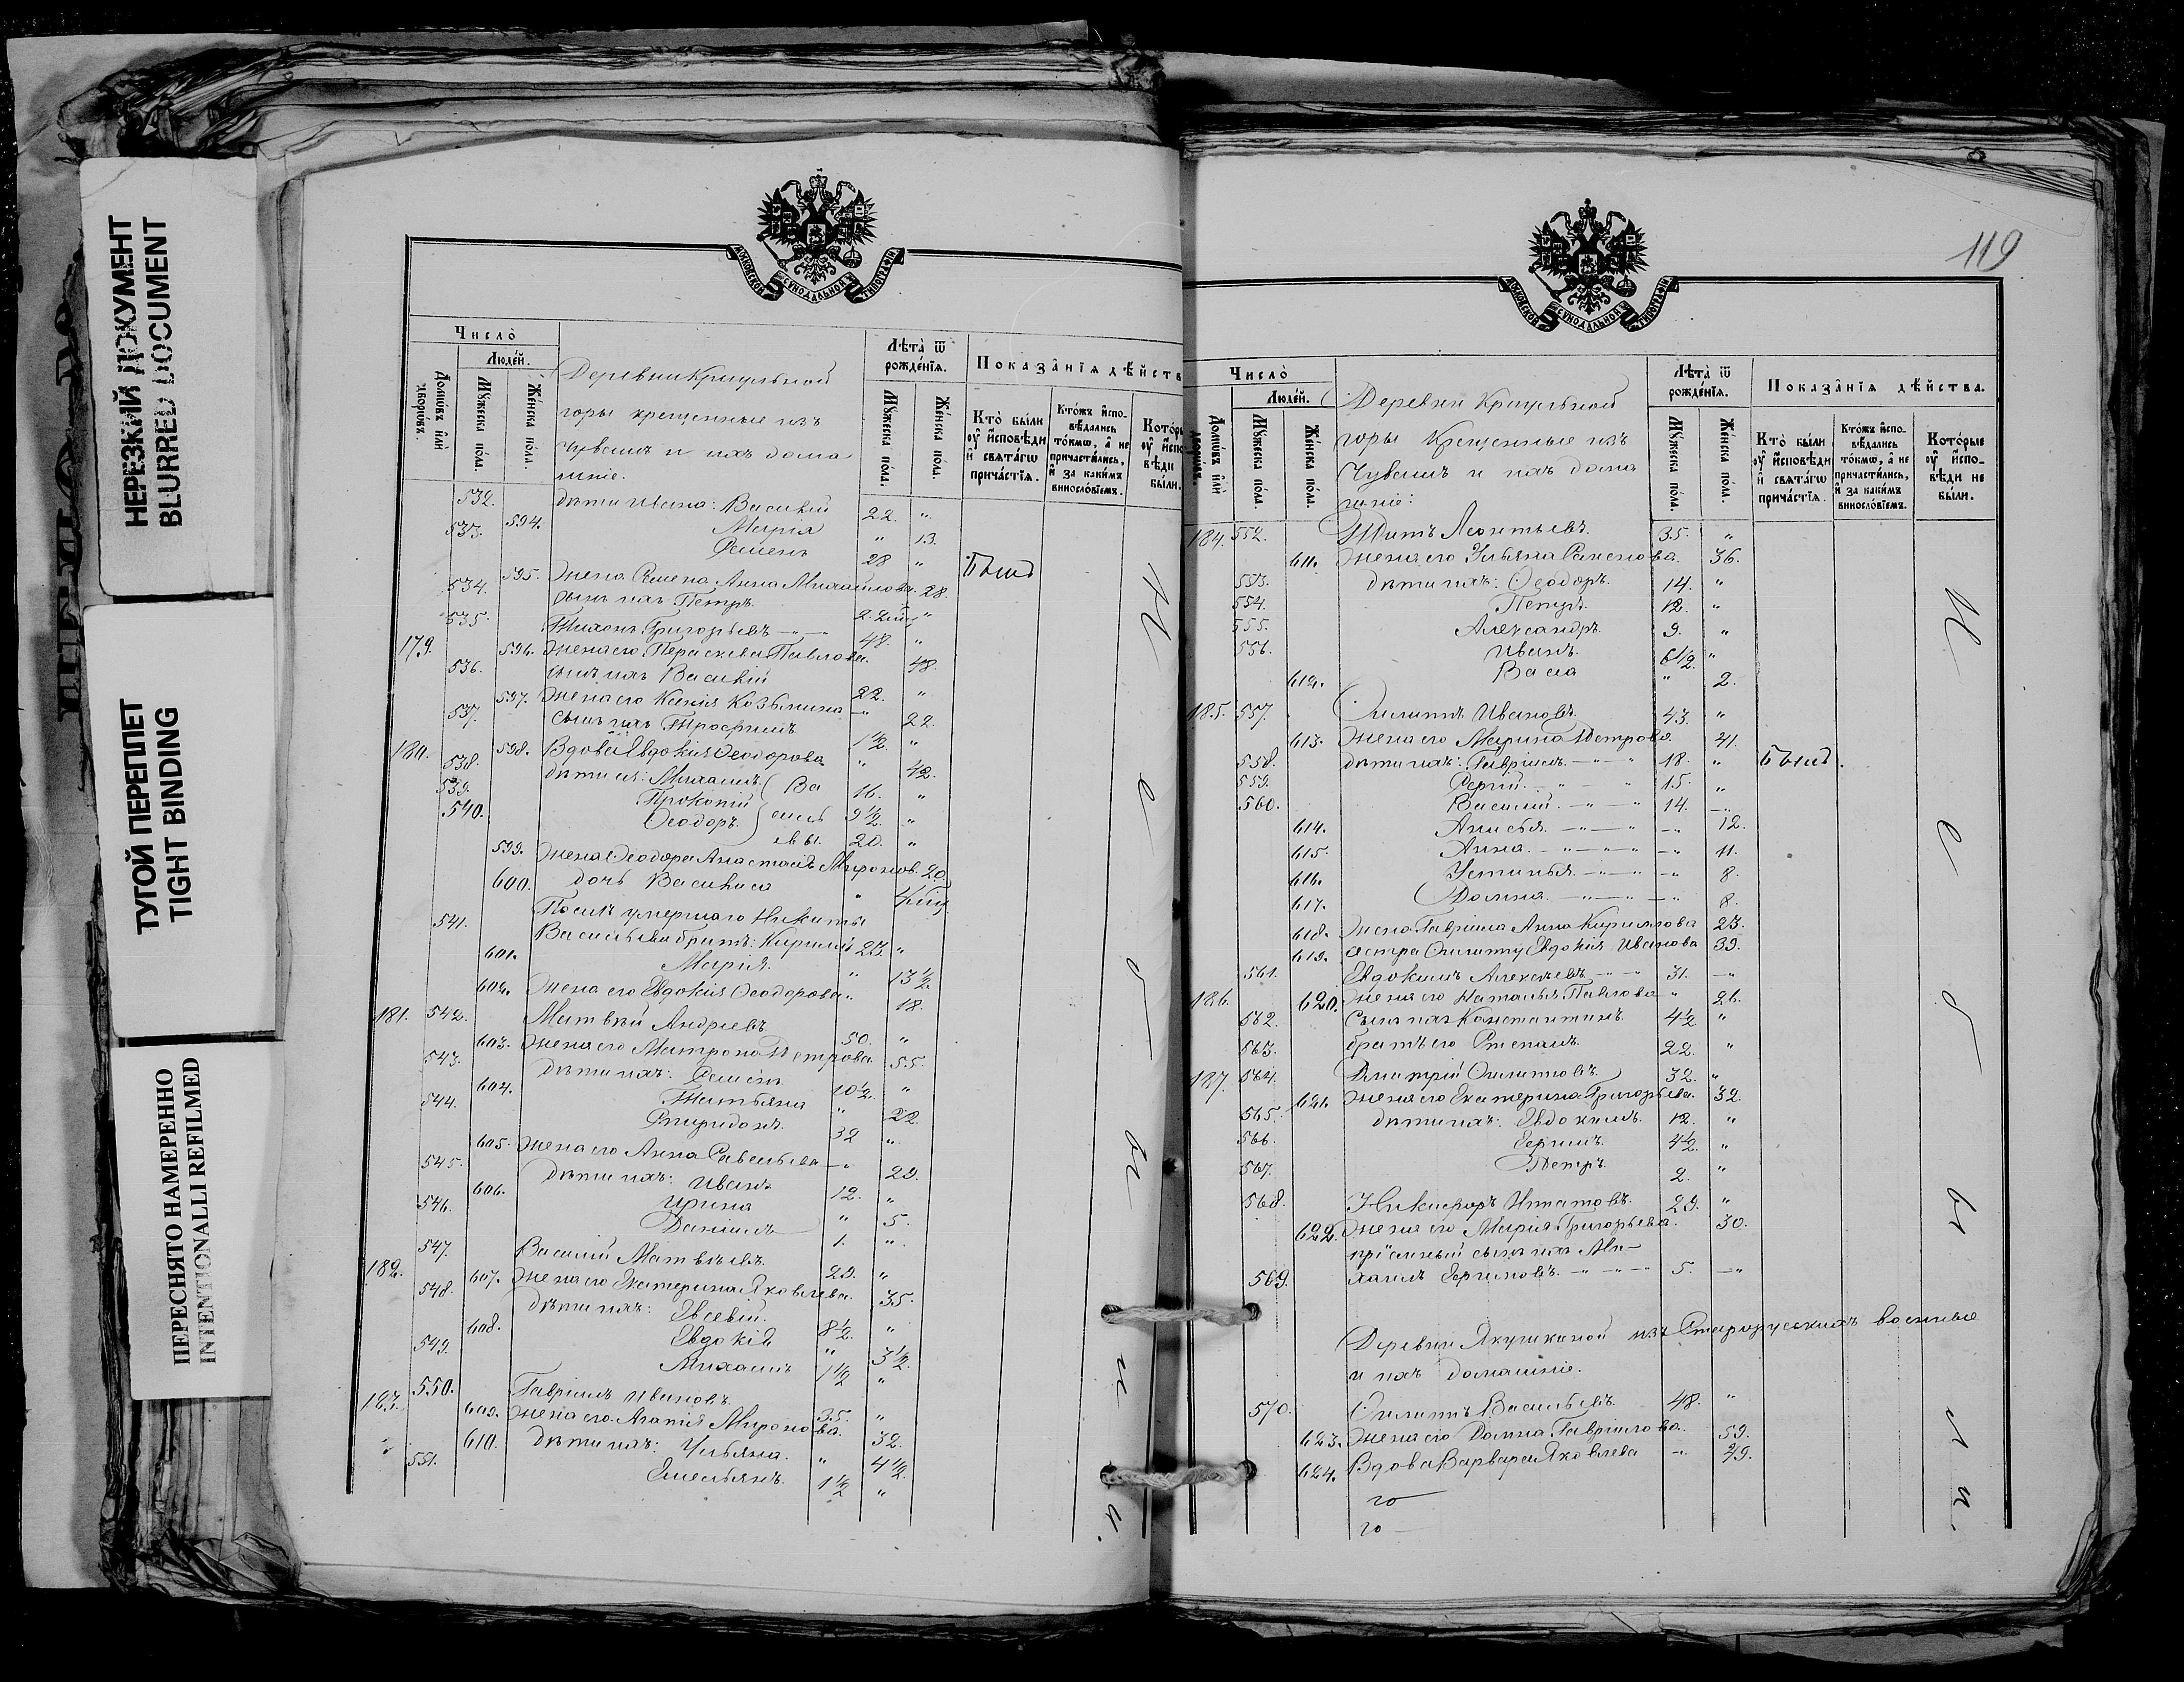 НЕРЕЗКИЙ ДОКУМЕНТ
BLURRED DOCUMENT
ТУГОЙ ПЕРЕПЛЕТ
TIGHT BINDING
ПЕРЕСНЯТО НАМЕРЕННО
INTENTIONALLI REFILMED
МОСКОВСКОЙ СѴНОДАЛЬНОЙ ТИПОГРАФІИ
Число̀
Людей.
Домѡвъ и҆лѝ дворѡвъ.
Мꙋжеска пола.
Же́нска пола.
Деревни
горы крещенные изъ
Чувашъ и ихъ дома
шніе.
Лѣта̀ ѿ рожде́нїѧ.
Мꙋжеска пола.
Же́нска пола.
Показа̂нїѧ дѣйств
Кто̀ бы́ли оу҆ и҆сповѣди и҆ свѧта́гѡ прича́стїѧ.
Кто́жъ и҆спо-вѣдались то́кмѡ, а҆ не причасти́лись, и҆ за каки́мъ винослов́їемъ.
532. дѣти Ивана: Василій 22. "
594. Марія " 13.
533. Семенъ 28 "
595. Жена Семена Анна Михайлова. 28.
534. сынъ ихъ Петръ 2. "
179. 535. Тихонъ Григорьевъ 48. "
596. Жена его Параскева Павлова. 48.
536. сынъ ихъ Василій 22. "
597. Жена его Ксенія Козьмина " 22.
537. Сынъ ихъ Трофимъ 1½. "
180. 598. Вдова Евдокія Ѳеодорова " 42.
538. дѣти ея: Михаилъ 16. "
539. Прокопій 9½. "
540. Ѳеодоръ 20. "
Ва
силь
евы.
599. Жена Ѳеодора Анастасія Миронов. 20.
600. дочь Василиса "
Послѣ умершаго Никиты
541. Васильева братъ: Кириллъ 23. "
601. Марія. " 13½.
602. Жена его Евдокія Ѳеодорова " 18.
181. 542. Матвѣй Андреевъ 50. "
603. Жена его Матрона Петрова. 55.
543. дѣти ихъ: Семенъ 10½. "
604. Татьяна " 22.
544. Спиридонъ 32 "
605. Жена его Анна Савельева " 29.
545. дѣти ихъ: Иванъ 12. "
606. Ирина " 5.
546. Даніилъ 1. "
182. 547. Василій Матвѣевъ. 29. "
607. Жена его Екатерина Яковлева. 35.
548. дѣти ихъ: Евсевій. 8½. "
608. Евдокія " 3½.
549. Михаилъ 1½ "
183. 550. Гавріилъ Ивановъ. 35. "
609. Жена его Агапія Миронова. 32.
610. дѣти ихъ: Ульяна. " 4½.
551. Емельянъ. 1½ "
Были
Не были.
119
МОСКОВСКОЙ СѴНОДАЛЬНОЙ ТИПОГРАФІИ
Число̀
Людей.
Мꙋжеска пола.
Же́нска пола.
Деревни
горы Крещенные изъ
Чувашъ и ихъ дома
шніе:
Лѣта̀ ѿ рожде́нїѧ.
Мꙋжеска пола.
Же́нска пола.
Показа̂нїѧ дѣ́йства.
Кто̀ бы́ли оу҆ и҆сповѣди и҆ свѧта́гѡ прича́стїѧ.
Кто́жъ и҆спо-вѣдались то́кмѡ, а҆ не причасти́лись, и҆ за каки́мъ винослов́їемъ.
Кото́рые оу҆ и҆спо-вѣди не бы́ли.
184. 552. Титъ Леонтьевъ. 35. "
611. Жена его Ульяна Семенова. 36.
553. дѣти ихъ: Ѳеодоръ. 14. "
554. Петръ. 12. "
555. Александръ. 9. "
556. Иванъ. 6½. "
612. Васса " 2.
185. 557. Филиппъ Ивановъ. 43. "
613. Жена его Марина Петрова. 41.
558. дѣти ихъ: Гавріилъ. 18. "
559. Сергій. 15. "
560. Василій. 14. "
614. Анисья. " 12.
615. Анна. " 11.
616. Устинья. " 8.
617. Домна. " 8.
618. Жена Гавріила Анна Кириллова 23.
619. сестра Филиппу Евдокія Иванова 39.
186. 561. Евдокимъ Алексѣевъ 31. "
620. Жена его Наталья Павлова " 26.
562. Сынъ ихъ Константинъ. 4½. "
563. братъ его Степанъ. 22. "
187. 564. Дмитрій Филипповъ. 32. "
621. Жена его Екатерина Григорьева. 32.
565. дѣти ихъ: Евдокимъ. 12. "
566. 4½. "
567. Петръ. 2. "
568. Никифоръ Ипатовъ. 29. "
622. Жена его Марія Григорьева. 30.
пріемный сынъ ихъ Ми-
569. хаилъ 5. "
Деревни Якушкиной изъ Старорусскихъ военные
и ихъ домашніе.
570. Филиппъ Васильевъ. 48. "
623. Жена его Домна Гавріилова. 59.
624. Вдова Варвара Яковлева " 49.
Были.
Не были.